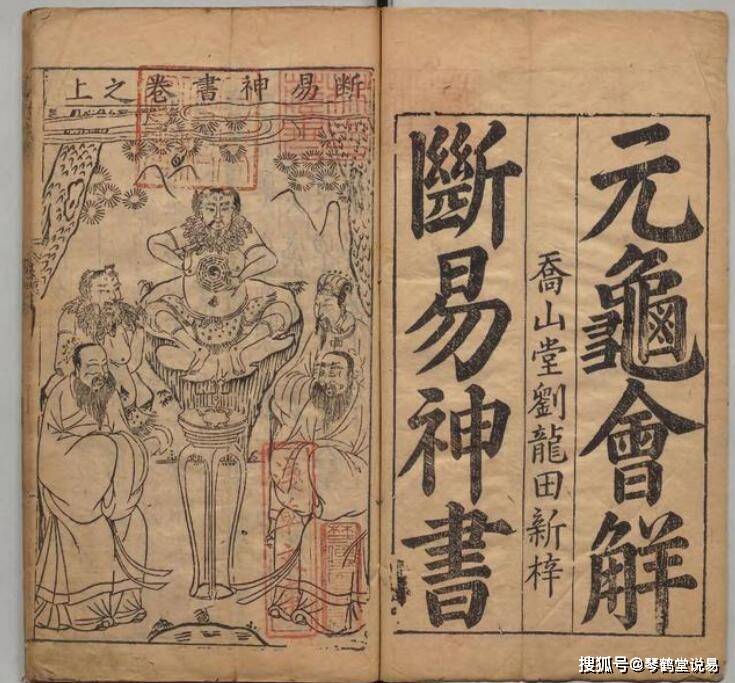 元龜會解
喬山堂劉龍田新梓
斷易神書
断易神書卷之上
搜狐号@琴鹤堂说易